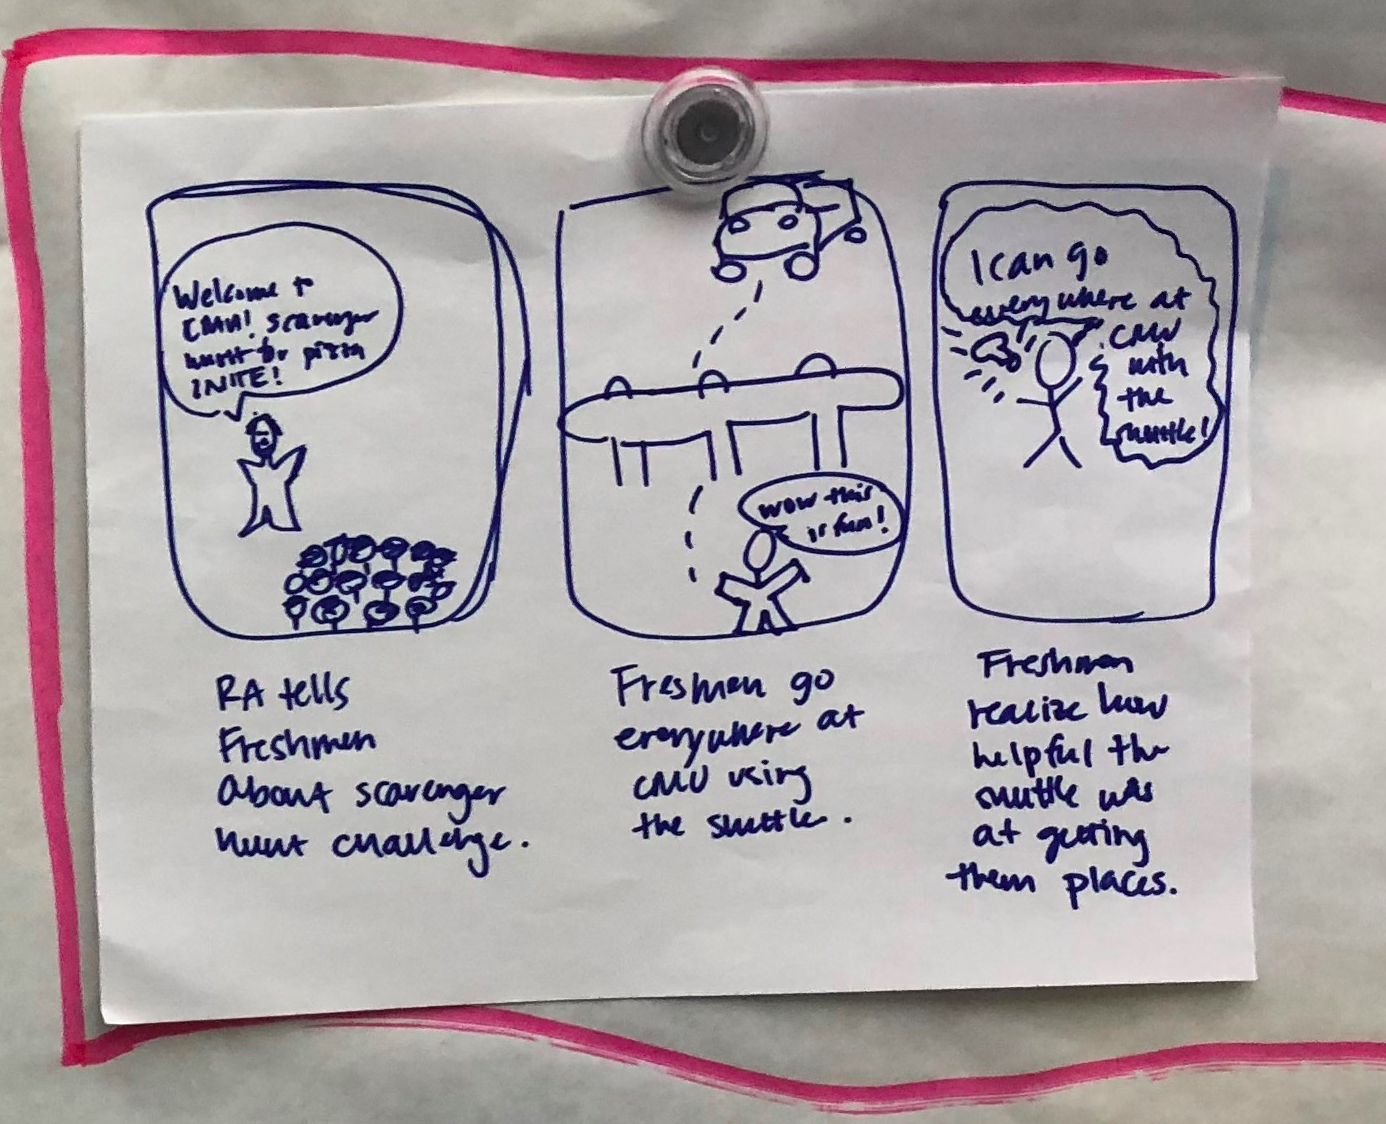 Welcome to
CMU! scavenger
hunt for pizza
2NITE!
RA tells
Freshmen
about scavenger
hunt challenge.
wow this
is fun!
Freshmen go
everywhere at
CMU using
the shuttle.
I can go
everywhere at
CMU
with
the
shuttle!
Freshmen
realize how
helpful the
shuttle was
at getting
them places.